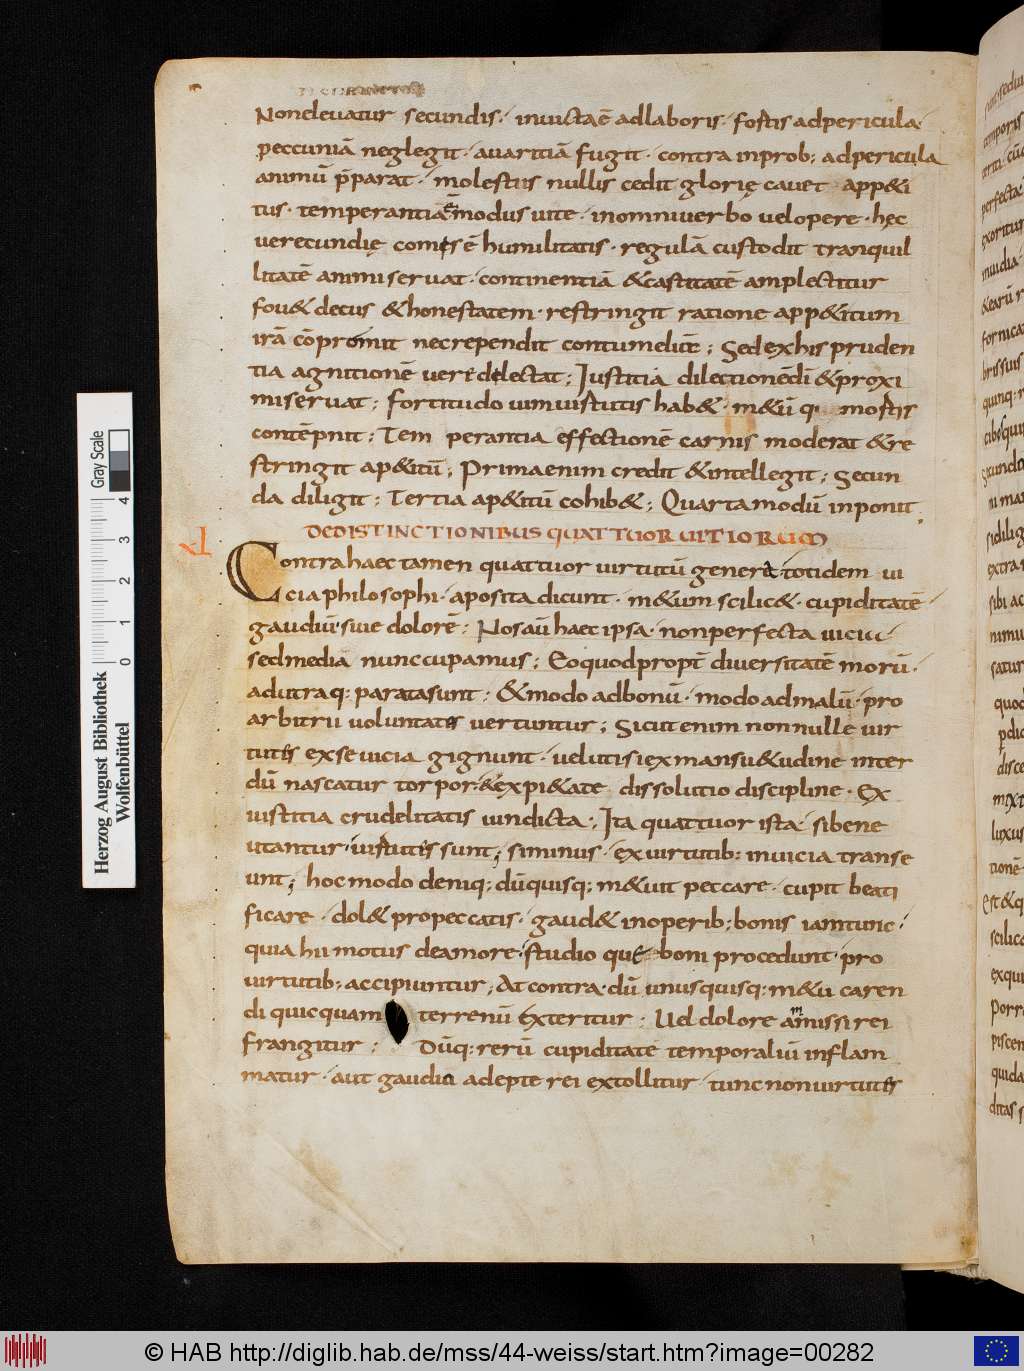 Nonelevatur secundis · inuictaē adlaboris · fortis adpericula·
peccuniā neglegit · auaritiā fugit · contra inprob; adpericula
animū p̄parat · molestiis nullis cedit glorię cauet · app&i
tus · temperantia ē modus uite · inomniuerbo uelopere · hęc
uerecundię comes ē humilitatis · regulā custodit tranquil
litatē animi seruat · continentiā &castitatē amplectitur
fou& decus &honestatem · restringit ratione app&itum
irā cōpromit necrependit contumelię ; Sed exhis pruden
tia agnitionē ueri delectat ; Iustitia dilectionēdī &proxi
mi seruat ; fortitudo uim uirtutis hab& · m&ū q· mortis
contēpnit ; Tem perantia effectionē carnis moderat &re
stringit ap&itū ; Prima enim credit &intellegit ; Secun
da diligit ; Tertia ap&itū cohib& ; Quarta modū inponit
XL DEDISTINCTIONIBUS QUATTUOR UITIORUM
Contra haec tamen quattuor uirtutū genera · totidem ui
cia philosophi · aposita dicunt · m&um scilic& · cupiditatē
gaudiū · siue dolorē ; Nos aū haec ipsa · nonperfecta uicia
sed media nunccupamus ; Eo quod propt̄ diuersitatē morū ·
ad utraq; parata sunt ; &modo adbonū · modo admalū · pro
arbitrii uoluntatis uertuntur ; Sicut enim nonnulle uir
tutis exse uicia gignunt · ueluti siex mansu&udine inter
dū nascatur torpor · &expi&ate dissolutio discipline · Ex
iustitia crudelitatis uindicta ; Ita quattuor ista · sibene
utantur · uirtutis sunt ; siminus · exuirtutib; inuicia transe
unt ; hoc modo deniq; dū quisq; m&uit peccare · cupit beati
ficare · dol& propeccatis · gaud& inoperib; bonis iamtunc ·
quia hii motus deamore · studio que boni procedunt · pro
uirtutib; accipiuntur ; At contra · dū unusquisq; m&ū caren
di quicquam terrenū exteritur ; Uel dolore amissi rei
frangitur ; Dūq; rerū cupiditate temporaliū inflam
matur · aut gaudio adepte rei extollitur · tunc nonuirtutis
Herzog August Bibliothek
Wolfenbüttel
Gray Scale
0 1 2 3 4
© HAB http://diglib.hab.de/mss/44-weiss/start.htm?image=00282